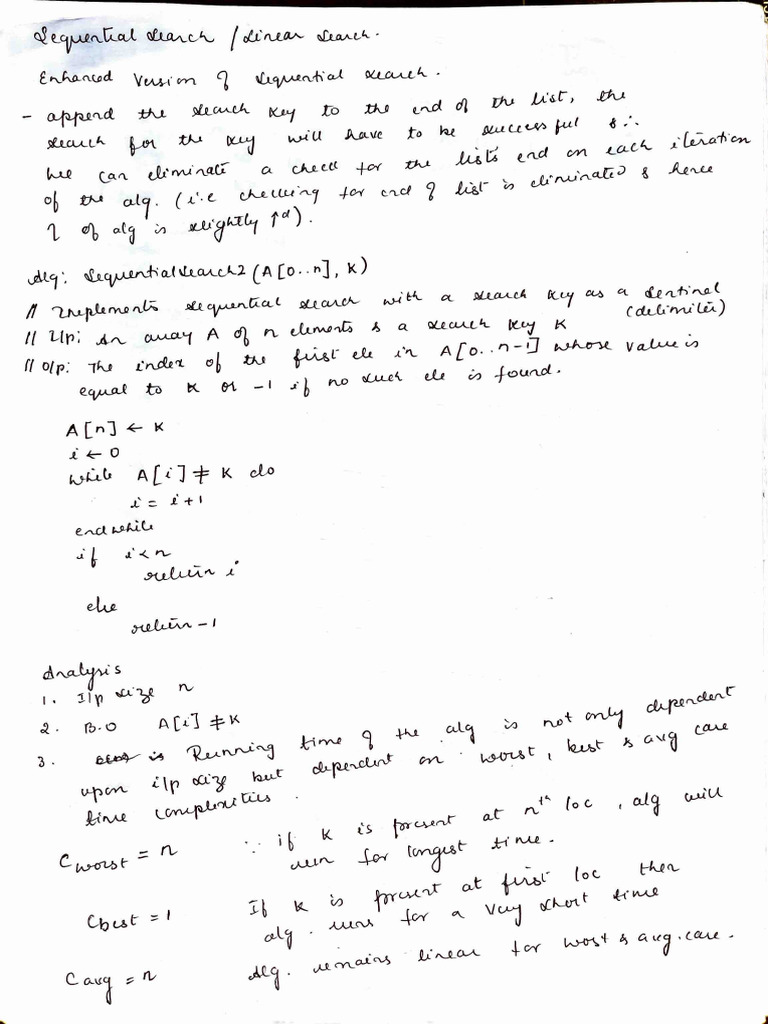 Sequential Search / Linear Search.
Enhanced Version of Sequential Search.
- append the search key to the end of the list, the
search for the key will have to be successful & ∴
we can eliminate a check for the list's end on each iteration
of the alg. (i.e checking for end of list is eliminated & hence
η of alg is slightly ↑d).
Alg: SequentialSearch2 (A[0..n], K)
// Implements sequential search with a search key as a sentinel
(delimiter)
// I/p: An array A of n elements & a search key K
// O/p: The index of the first ele in A[0..n-1] whose value is
equal to K or -1 if no such ele is found.
A[n] ← K
i ← 0
while A[i] ≠ K do
i = i+1
endwhile
if i<n
return i
else
return -1
Analysis
1. I/p size n
2. B.O A[i] ≠ K
3. is Running time of the alg is not only dependent
upon i/p size but dependent on worst, best & avg case
time complexities.
Cworst = n ∵ if K is present at nth loc, alg will
run for longest time.
Cbest = 1 If K is present at first loc then
alg. runs for a very short time
Cavg = n Alg. remains linear for worst & avg. case.